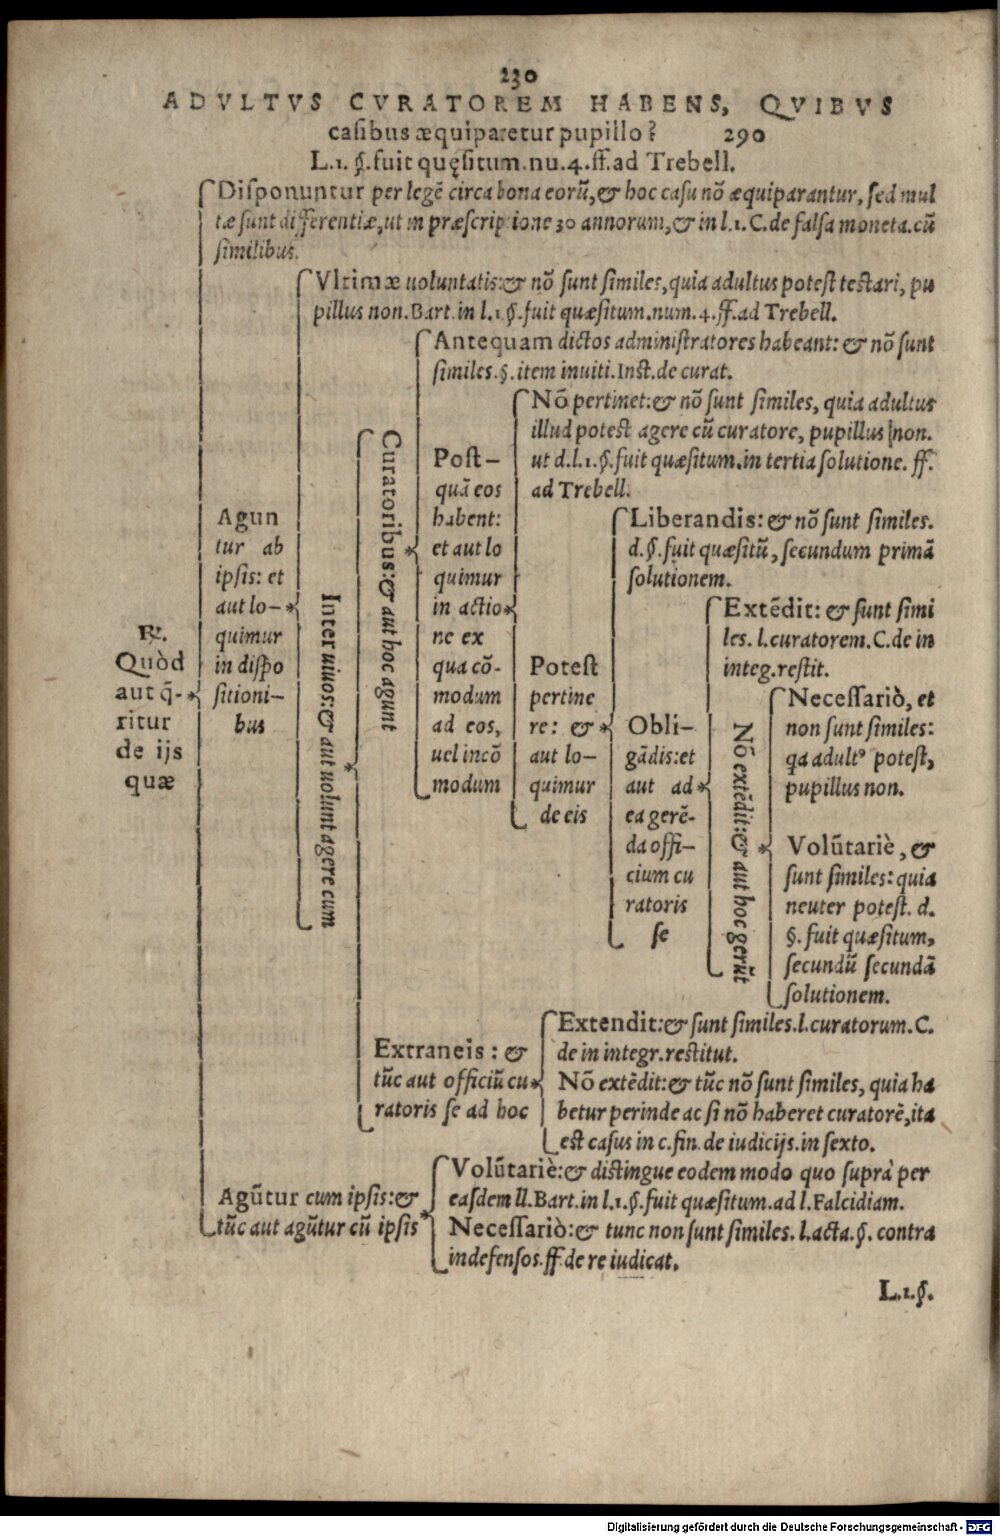 230
ADVLTVS CVRATOREM HABENS, QVIBVS
casibus æquiparetur pupillo? 290
L.1. §. fuit quęsitum.nu.4.ff.ad Trebell.
Disponuntur per legẽ circa bona eorũ,& hoc casu nõ æquiparantur, sed mul
tæ sunt differentiæ,ut in præscriptione 30 annorum,& in l.1.C.de falsa moneta.cũ
similibus.
Vltimæ uoluntatis:& nõ sunt similes,quia adultus potest testari, pu
pillus non.Bart.in l.1.§.fuit quæsitum.num.4.ff.ad Trebell.
Antequam dictos administratores habeant: & nõ sunt
similes.§.item inuiti.Inst.de curat.
Nõ pertinet:& nõ sunt similes, quia adultus
illud potest agere cũ curatore, pupillus non.
ut d.l.1.§.fuit quæsitum.in tertia solutione. ff.
ad Trebell.
Liberandis: & nõ sunt similes.
d.§.fuit quæsitũ, secundum primã
solutionem.
Extẽdit: & sunt simi
les. l.curatorem.C.de in
integ.restit.
Necessariò, et
non sunt similes:
qa adultꝰ potest,
pupillus non.
Volũtariè, &
sunt similes: quia
neuter potest. d.
§. fuit quæsitum,
secundũ secundã
solutionem.
Nõ extẽdit:& aut hoc gerũt
Obli-
gãdis:et
aut ad
ea gerẽ-
da offi-
cium cu
ratoris
se
Potest
pertine
re: &
aut lo-
quimur
de eis
Post-
quã eos
habent:
et aut lo
quimur
in actio
ne ex
qua cõ-
modum
ad eos,
uel incõ
modum
Curatoribus:& aut hoc agunt
Inter uiuos:& aut uolunt agere cum
Agun
tur ab
ipsis: et
aut lo-
quimur
in dispo
sitioni-
bus
℞.
Quòd
aut q̃-
ritur
de ijs
quæ
Extraneis: &
tũc aut officiũ cu
ratoris se ad hoc
Extendit:& sunt similes.l.curatorum.C.
de in integr.restitut.
Nõ extẽdit:& tũc nõ sunt similes, quia ha
betur perinde ac si nõ haberet curatorẽ,ita
est casus in c.fin.de iudicijs.in sexto.
Agũtur cum ipsis:&
tũc aut agũtur cũ ipsis
Volũtariè:& distingue eodem modo quo suprà per
easdem ll.Bart.in l.1.§.fuit quæsitum.ad l.Falcidiam.
Necessariò:& tunc non sunt similes. l.acta.§. contra
indefensos.ff.de re iudicat.
L.1.§.
Digitalisierung gefördert durch die Deutsche Forschungsgemeinschaft - DFG